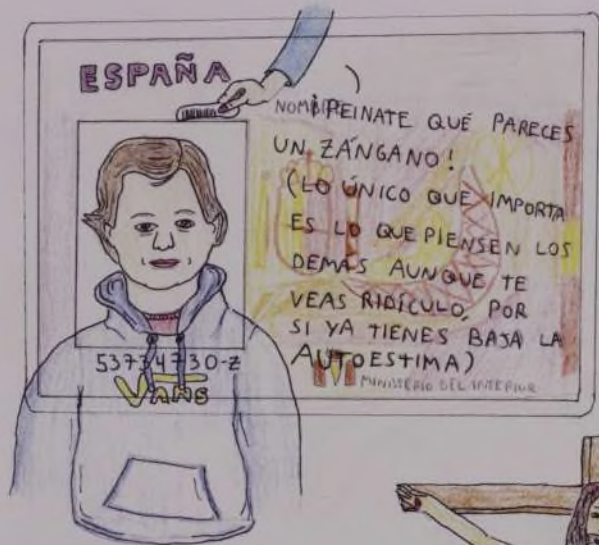 ESPAÑA
¡PEINATE QUÉ PARECES
UN ZÁNGANO!
(LO ÚNICO QUE IMPORTA
ES LO QUE PIENSEN LOS
DEMÁS AUNQUE TE
VEAS RIDÍCULO, POR
SI YA TIENES BAJA LA
AUTOESTIMA)
MINISTERIO DEL INTERIOR
VANS